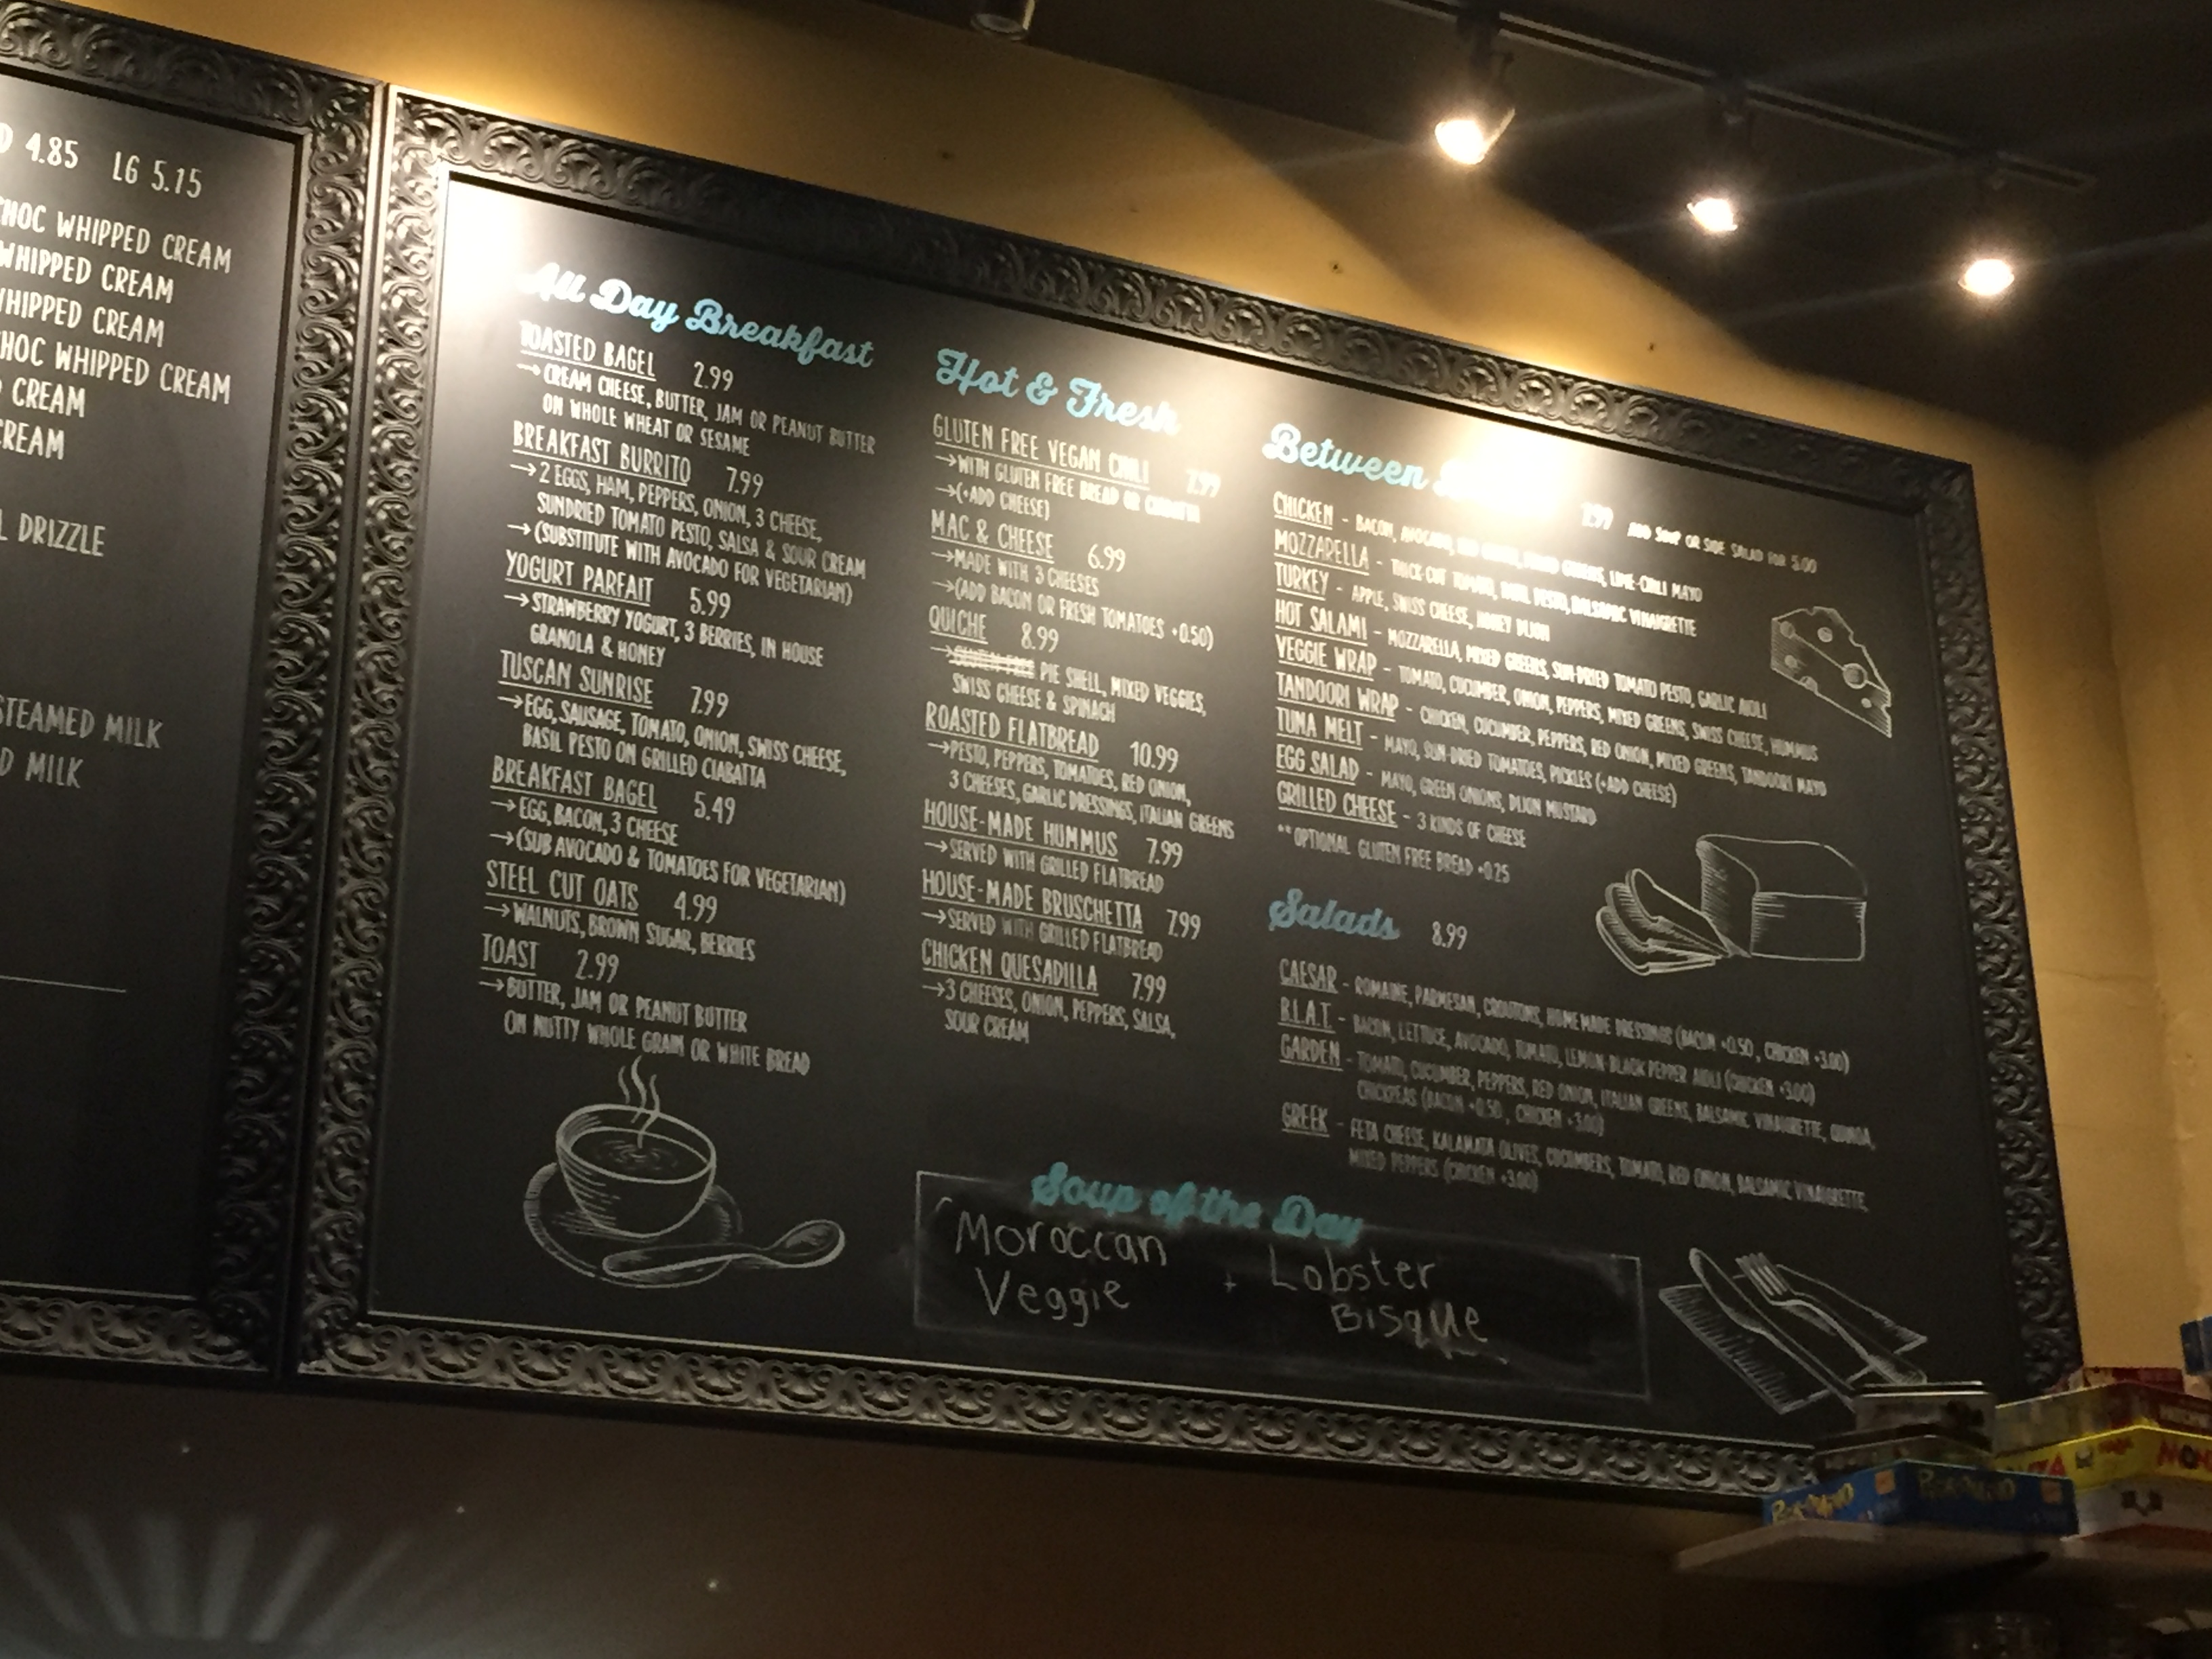 4.85 LG 5.15
WHIPPED CREAM
WHIPPED CREAM
WHIPPED CREAM
WHIPPED CREAM
CREAM
CREAM
DRIZZLE
STEAMED MILK
MILK
All Day Breakfast
TOASTED BAGEL 2.99
→CREAM CHEESE, BUTTER, JAM OR PEANUT BUTTER
ON WHOLE WHEAT OR SESAME
BREAKFAST BURRITO 7.99
→2 EGGS, HAM, PEPPERS, ONION, 3 CHEESE,
SUNDRIED TOMATO PESTO, SALSA & SOUR CREAM
→(SUBSTITUTE WITH AVOCADO FOR VEGETARIAN)
YOGURT PARFAIT 5.99
→STRAWBERRY YOGURT, 3 BERRIES, IN HOUSE
GRANOLA & HONEY
TUSCAN SUNRISE 7.99
→EGG, SAUSAGE, TOMATO, ONION, SWISS CHEESE,
BASIL PESTO ON GRILLED CIABATTA
BREAKFAST BAGEL 5.49
→EGG, BACON, 3 CHEESE
→(SUB AVOCADO & TOMATOES FOR VEGETARIAN)
STEEL CUT OATS 4.99
→WALNUTS, BROWN SUGAR, BERRIES
TOAST 2.99
→BUTTER, JAM OR PEANUT BUTTER
ON NUTTY WHOLE GRAIN OR WHITE BREAD
Hot & Fresh
GLUTEN FREE VEGAN CHILI 7.99
→WITH GLUTEN FREE BREAD OR CIABATTA
→(+ADD CHEESE)
MAC & CHEESE 6.99
→MADE WITH 3 CHEESES
→(ADD BACON OR FRESH TOMATOES +0.50)
QUICHE 8.99
→GLUTEN FREE PIE SHELL, MIXED VEGGIES,
SWISS CHEESE & SPINACH
ROASTED FLATBREAD 10.99
→PESTO, PEPPERS, TOMATOES, RED ONION,
3 CHEESES, GARLIC DRESSINGS, ITALIAN GREENS
HOUSE-MADE HUMMUS 7.99
→SERVED WITH GRILLED FLATBREAD
HOUSE-MADE BRUSCHETTA 7.99
→SERVED WITH GRILLED FLATBREAD
CHICKEN QUESADILLA 7.99
→3 CHEESES, ONION, PEPPERS, SALSA,
SOUR CREAM
Between 7.99 ADD SOUP OR SIDE SALAD FOR 5.00
CHICKEN - BACON, AVOCADO, MIXED GREENS, LIME-CHILI MAYO
MOZZARELLA - THICK CUT TOMATO, BASIL PESTO, BALSAMIC VINAIGRETTE
TURKEY - APPLE, SWISS CHEESE, HONEY DIJON
HOT SALAMI - MOZZARELLA, MIXED GREENS, SUN-DRIED TOMATO PESTO, GARLIC AIOLI
VEGGIE WRAP - TOMATO, CUCUMBER, ONION, PEPPERS, MIXED GREENS, SWISS CHEESE, HUMMUS
TANDOORI WRAP - CHICKEN, CUCUMBER, PEPPERS, RED ONION, MIXED GREENS, TANDOORI MAYO
TUNA MELT - MAYO, SUN-DRIED TOMATOES, PICKLES (+ADD CHEESE)
EGG SALAD - MAYO, GREEN ONIONS, DIJON MUSTARD
GRILLED CHEESE - 3 KINDS OF CHEESE
**OPTIONAL GLUTEN FREE BREAD +0.25
Salads 8.99
CAESAR - ROMAINE, PARMESAN, CROUTONS, HOMEMADE DRESSINGS (BACON +0.50, CHICKEN +3.00)
B.L.A.T. - BACON, LETTUCE, AVOCADO, TOMATO, LEMON-BLACK PEPPER AIOLI (CHICKEN +3.00)
GARDEN - TOMATO, CUCUMBER, PEPPERS, RED ONION, ITALIAN GREENS, BALSAMIC VINAIGRETTE, QUINOA,
CHICKPEAS (BACON +0.50, CHICKEN +3.00)
GREEK - FETA CHEESE, KALAMATA OLIVES, CUCUMBERS, TOMATO, RED ONION, BALSAMIC VINAIGRETTE,
MIXED PEPPERS (CHICKEN +3.00)
Soup of the Day
Moroccan + Lobster
Veggie Bisque